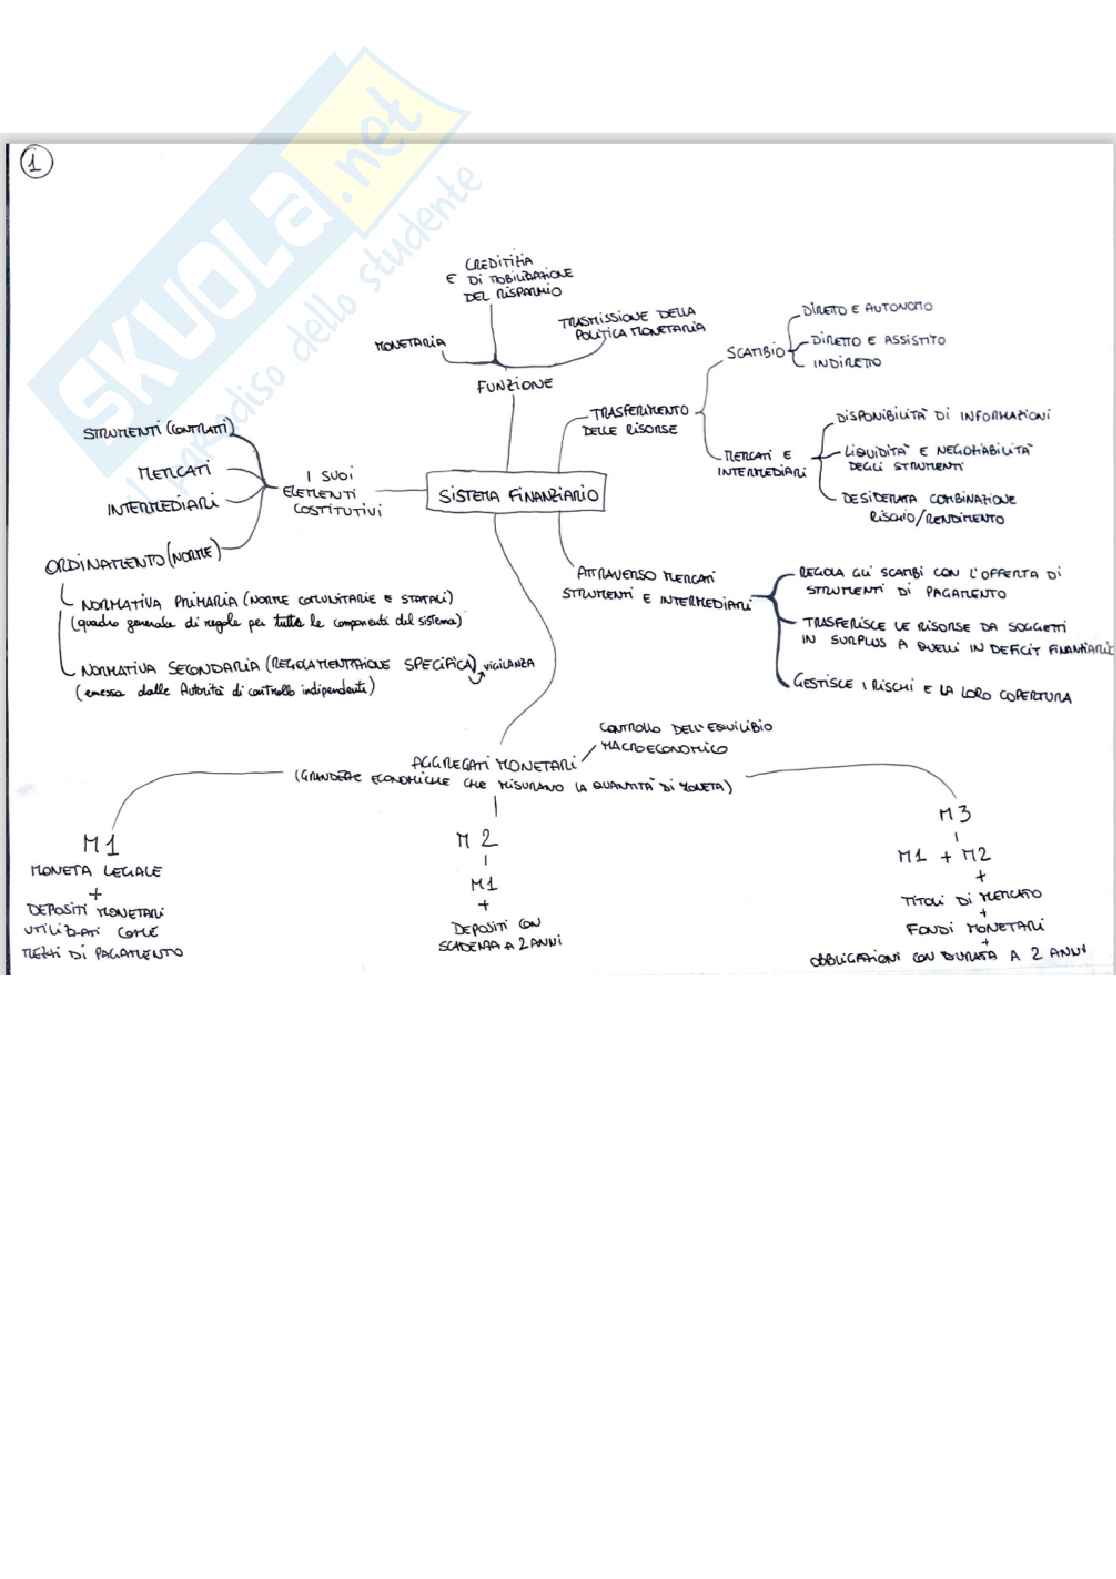 SKUOLA.net
Il paradiso dello studente
1
CREDITIZIA
E DI MOBILIZZAZIONE
DEL RISPARMIO
MONETARIA
TRASMISSIONE DELLA
POLITICA MONETARIA
FUNZIONE
SCAMBIO
DIRETO E AUTONOMO
DIRETTO E ASSISTITO
INDIRETTO
TRASFERIMENTO
DELLE RISORSE
MERCATI E
INTERMEDIARI
DISPONIBILITÀ DI INFORMAZIONI
LIQUIDITÀ E NEGOZIABILITÀ
DEGLI STRUMENTI
DESIDERATA COMBINAZIONE
RISCHIO/RENDIMENTO
STRUMENTI (CONTRATTI)
MERCATI
INTERMEDIARI
ORDINAMENTO (NORME)
I SUOI
ELEMENTI
COSTITUTIVI
SISTEMA FINANZIARIO
NORMATIVA PRIMARIA (NORME COMUNITARIE E STATALI)
(quadro generale di regole per tutte le componenti del sistema)
NORMATIVA SECONDARIA (REGOLAMENTAZIONE SPECIFICA) VIGILANZA
(emessa dalle Autorità di controllo indipendenti)
ATTRAVERSO MERCATI
STRUMENTI E INTERMEDIARI
REGOLA GLI SCAMBI CON L'OFFERTA DI
STRUMENTI DI PAGAMENTO
TRASFERISCE LE RISORSE DA SOGGETTI
IN SURPLUS A QUELLI IN DEFICIT FINANZIARIO
GESTISCE I RISCHI E LA LORO COPERTURA
CONTROLLO DELL'EQUILIBIO
MACROECONOMICO
AGGREGATI MONETARI
(GRANDEZZE ECONOMICHE CHE MISURANO LA QUANTITÀ DI MONETA)
M1
MONETA LEGALE
+
DEPOSITI MONETARI
UTILIZZATI COME
MEZZI DI PAGAMENTO
M2
M1
+
DEPOSITI CON
SCADENZA A 2 ANNI
M3
M1 + M2
+
TITOLI DI MERCATO
+
FONDI MONETARI
+
OBBLIGAZIONI CON DURATA A 2 ANNI